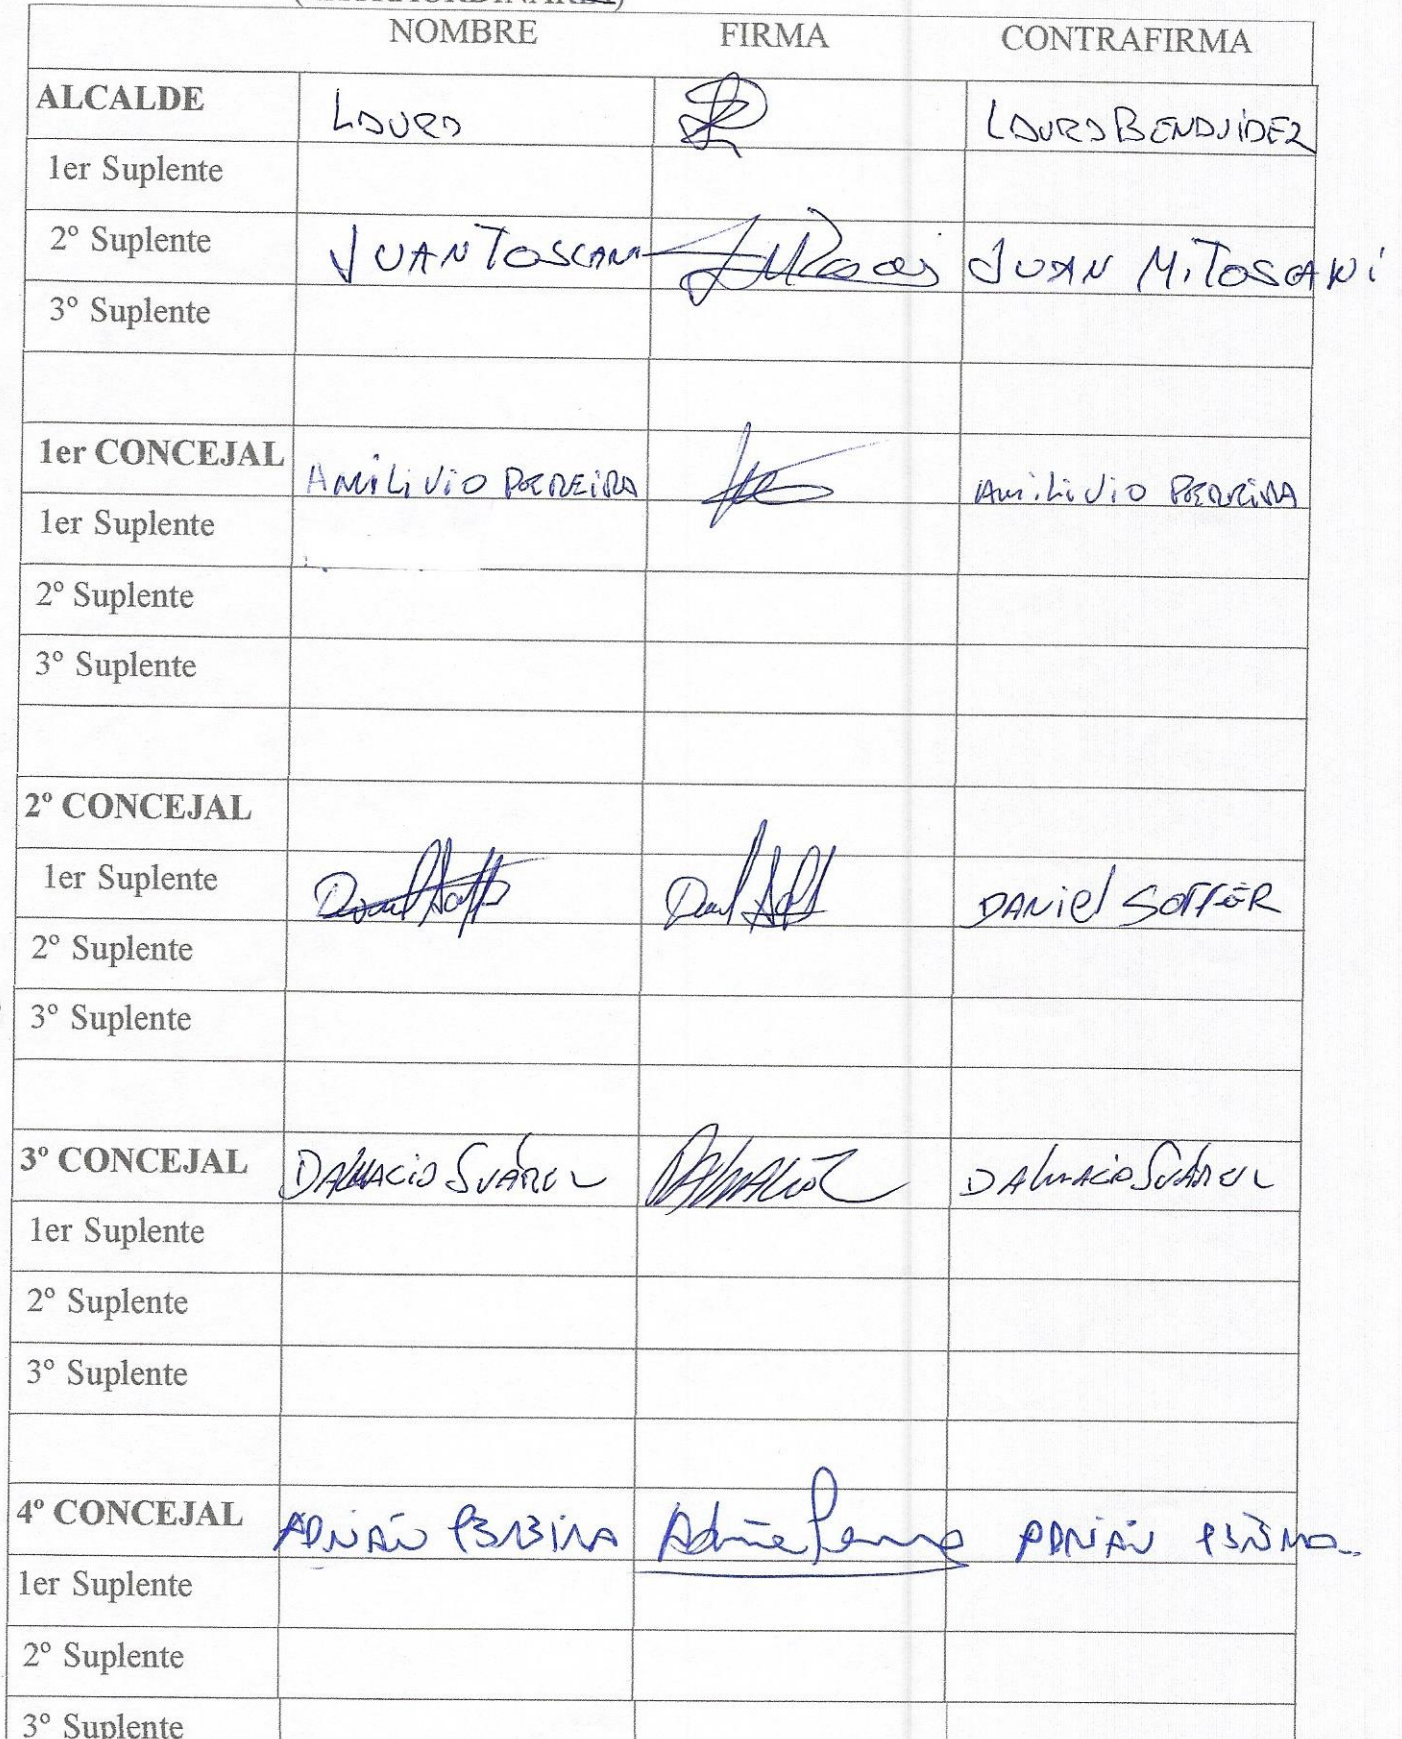 NOMBRE FIRMA CONTRAFIRMA
ALCALDE Laura Laura
1er Suplente
2º Suplente JUAN TOSCANI JUAN M. TOSCANI
3º Suplente
1er CONCEJAL Amilivio Pereira Amilivio Pereira
1er Suplente
2º Suplente
3º Suplente
2º CONCEJAL
1er Suplente DANIEL SOFFER
2º Suplente
3º Suplente
3º CONCEJAL DALMACIO SUÁREZ DALMACIO SUÁREZ
1er Suplente
2º Suplente
3º Suplente
4º CONCEJAL ADRIÁN ADRIÁN
1er Suplente
2º Suplente
3º Suplente